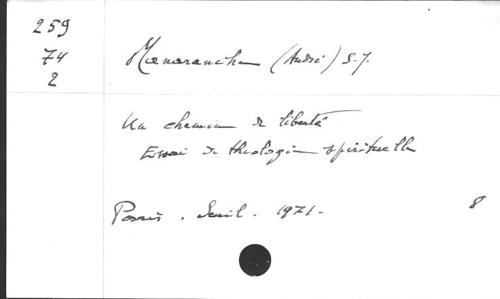 259
74
2
Manaranche (André) S.J.
Un chemin de liberté
Essai de théologie spirituelle
Paris. Seuil. 1971.
8